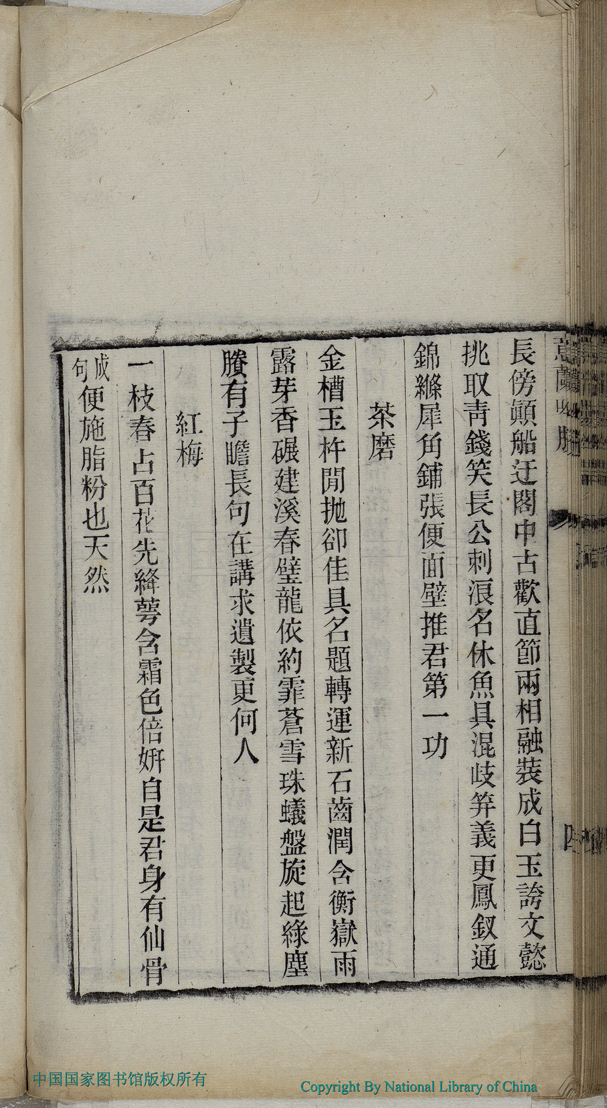 長傍顛船迂閣中古歡直節兩相融裝成白玉誇文懿
挑取靑錢笑長公刺浪名休魚具混歧笄義更鳳釵通
錦縧犀角鋪張便面壁推君第一功
茶磨
金槽玉杵閒抛卻佳具名題轉運新石齒潤含衡嶽雨
露芽香碾建溪春璧龍依約霏蒼雪珠蟻盤旋起綠塵
賸有子瞻長句在講求遺製更何人
紅梅
一枝春占百花先絳萼含霜色倍姸自是君身有仙骨
成句
便施脂粉也天然
四
中国国家图书馆版权所有
Copyright By National Library of China